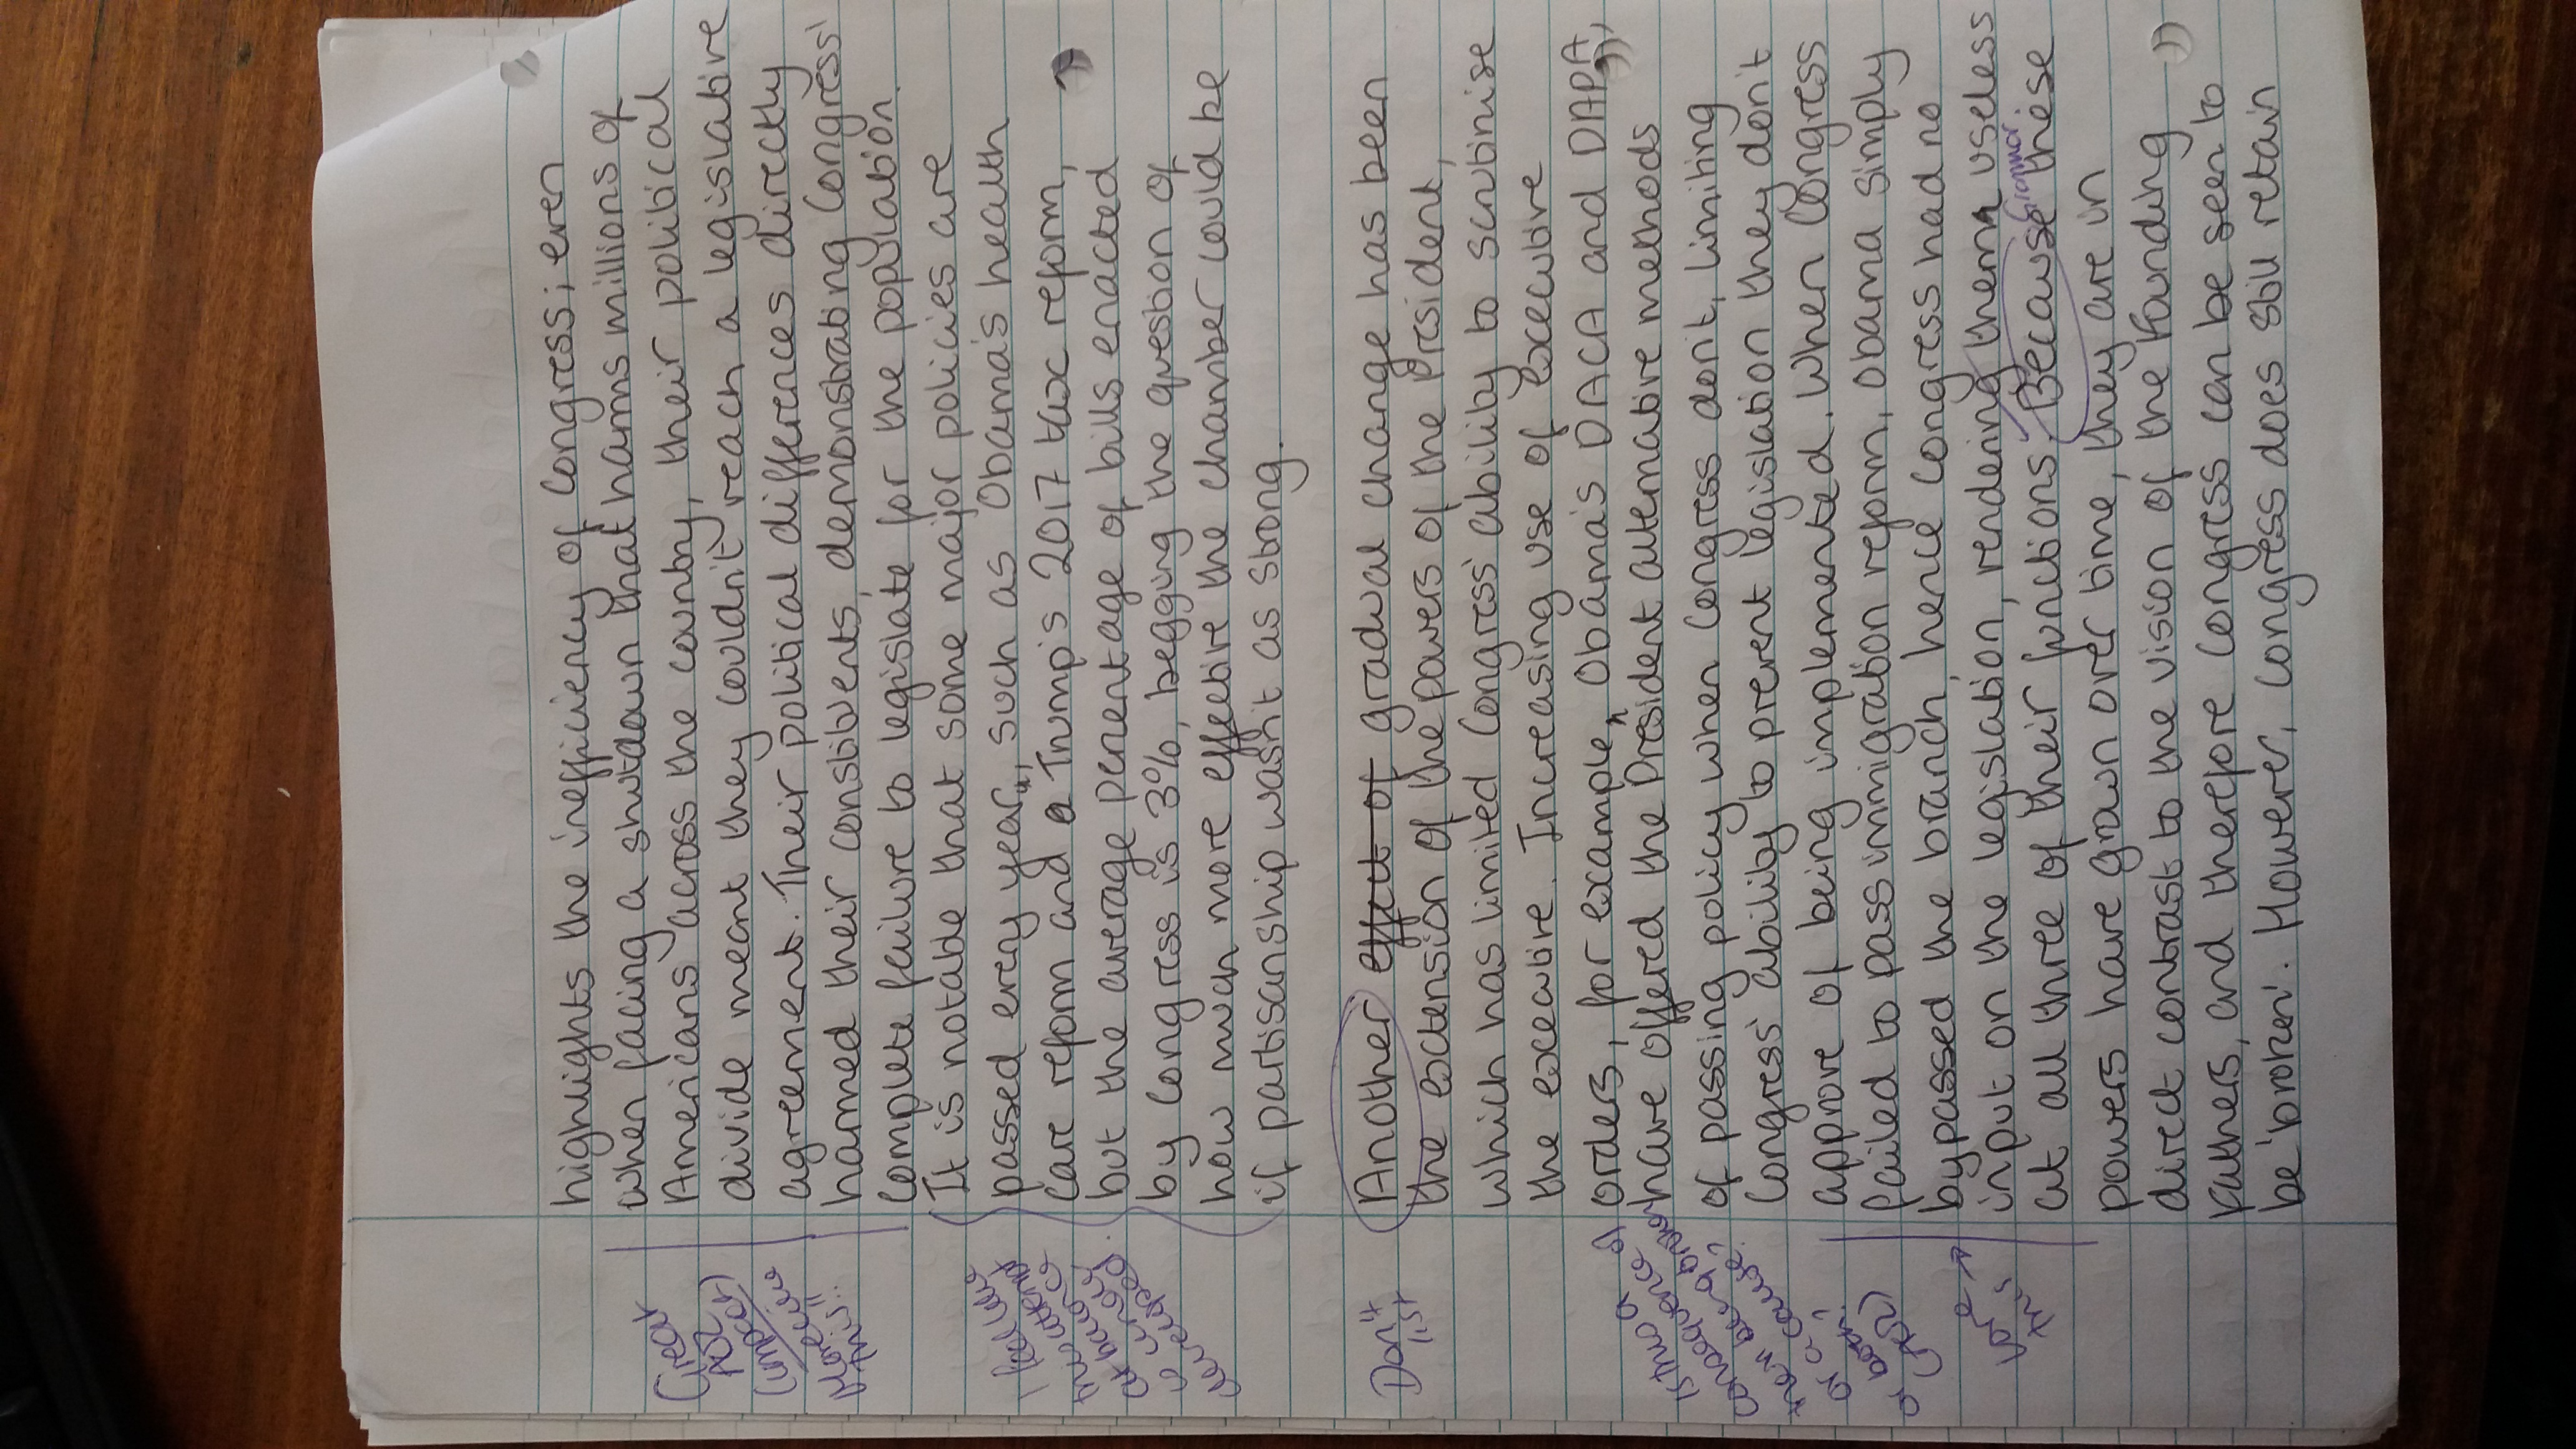 highlights the inefficiency of Congress; even
when facing a shutdown that harms millions of
Americans across the country, their political
divide meant they couldn't reach a legislative
agreement. Their political differences directly
harmed their constituents, demonstrating Congress'
complete failure to legislate for the population.
It is notable that some major policies are
passed every year, such as Obama's health
care reform and Trump's 2017 tax reform,
but the average percentage of bills enacted
by Congress is 3%, begging the question of
how much more effective the chamber could be
if partisanship wasn't as strong.
Great
AO2
(impact)
I feel like
this
at
is
developed
Another effect of gradual change has been
the extension of the powers of the President,
which has limited Congress' ability to scrutinise
the executive. Increasing use of executive
orders, for example, Obama's DACA and DAPA,
have offered the President alternative methods
of passing policy when Congress don't, limiting
Congress' ability to prevent legislation they don't
approve of being implemented. When Congress
failed to pass immigration reform, Obama simply
bypassed the branch, hence Congress had no
input on the legislation, rendering them useless
at all three of their functions. Because these
powers have grown over time, they are in
direct contrast to the vision of the Founding
Fathers, and therefore Congress can be seen to
be 'broken'. However, Congress does still retain
Don't
list
Is this a
consequence of
a cause,
or both?
(AO2)
love
this
Grammar